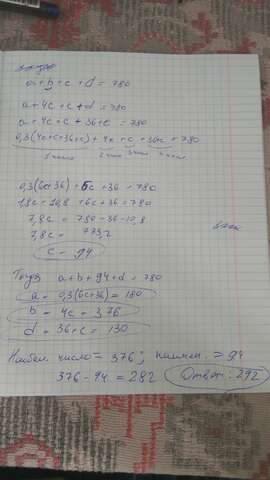 a + b + c + d = 780
a + 4c + c + d = 780
a + 4c + c + 36 + c = 780
0,3(4c+c+36+c) + 4c + c + 36+c = 780
1 число 2 число 3 число 4 число
0,3(6c+36) + 6c + 36 = 780
1,8c + 10,8 + 6c + 36 = 780
7,8c = 780 - 36 - 10,8
7,8c = 733,2
c = 94
Тогда a + b + 94 + d = 780
a = 0,3(6c+36) = 180
b = 4c = 376
d = 36 + c = 130
Наибол. число = 376; наимен. = 94
376 - 94 = 282 Ответ: 292